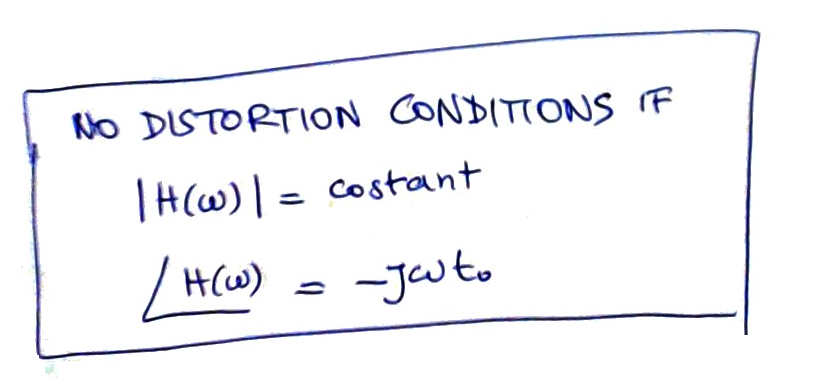 NO DISTORTION CONDITIONS IF
|H(ω)| = costant
∠H(ω) = -jωt₀